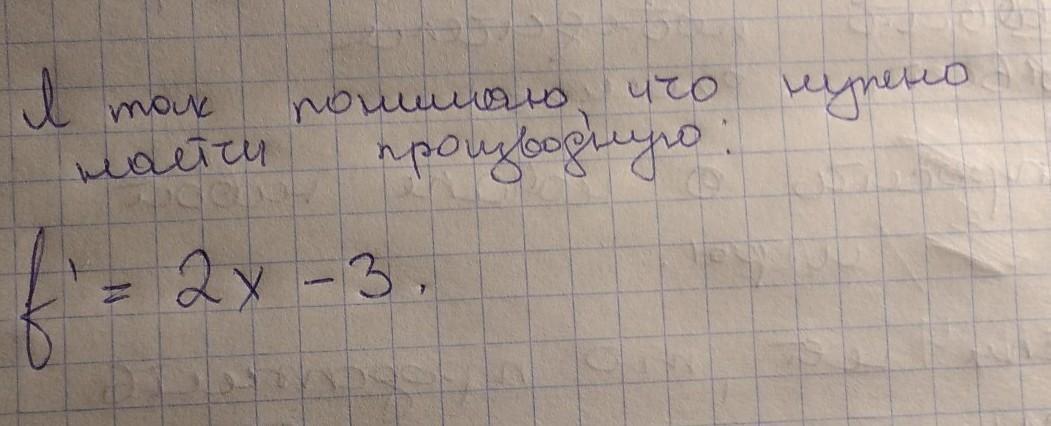 Я так понимаю, что нужно
найти производную:
f' = 2x - 3.